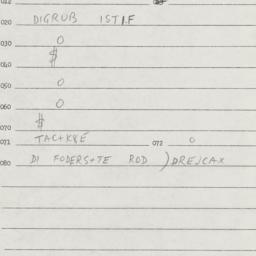 020 DIGRUB ISTIF
030 0
$
040
050 0
060 0
070 $
071 TAC+KYE 072 0
080 DI FODERS+TE ROD )DREJCAX